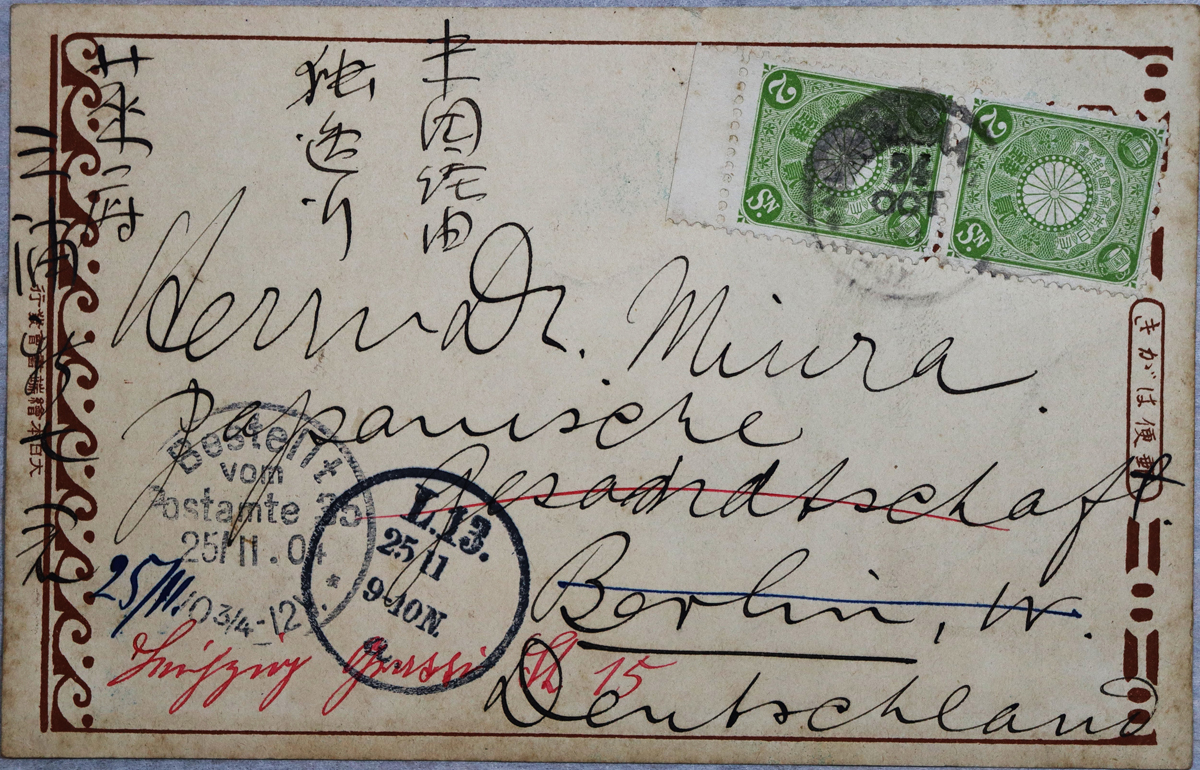 米国経由
独逸行
Herrn Dr. Miura.
Japanische
Gesandtschaft.
Berlin, W.
Deutschland
Leipzig Grassi St 15
25/11.
Bestellt
vom
Postamte 35
25/11.04
10 3/4-12V.
L.13.
25 11
9-10N.
24
OCT
2
2
SN.
SN.
きがは便郵
行業會書葉繪本日大